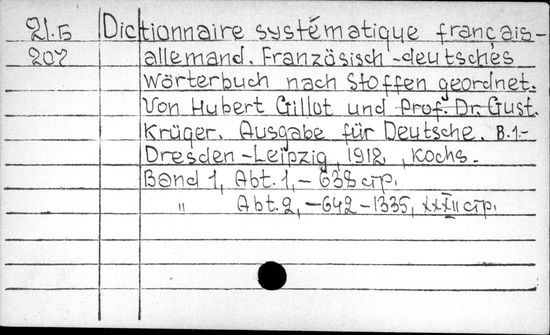 21.5 Dictionnaire systématique français-
207 allemand. Französisch-deutsches
Wörterbuch nach Stoffen geordnet.
Von Hubert Gillot und Prof. Dr. Gust.
Krüger. Ausgabe für Deutsche. B.1.-
Dresden-Leipzig, 1912, Kochs.
Band 1, Abt. 1, - 638 стр.
" Abt. 2, - 642 - 1335, XXXII стр.